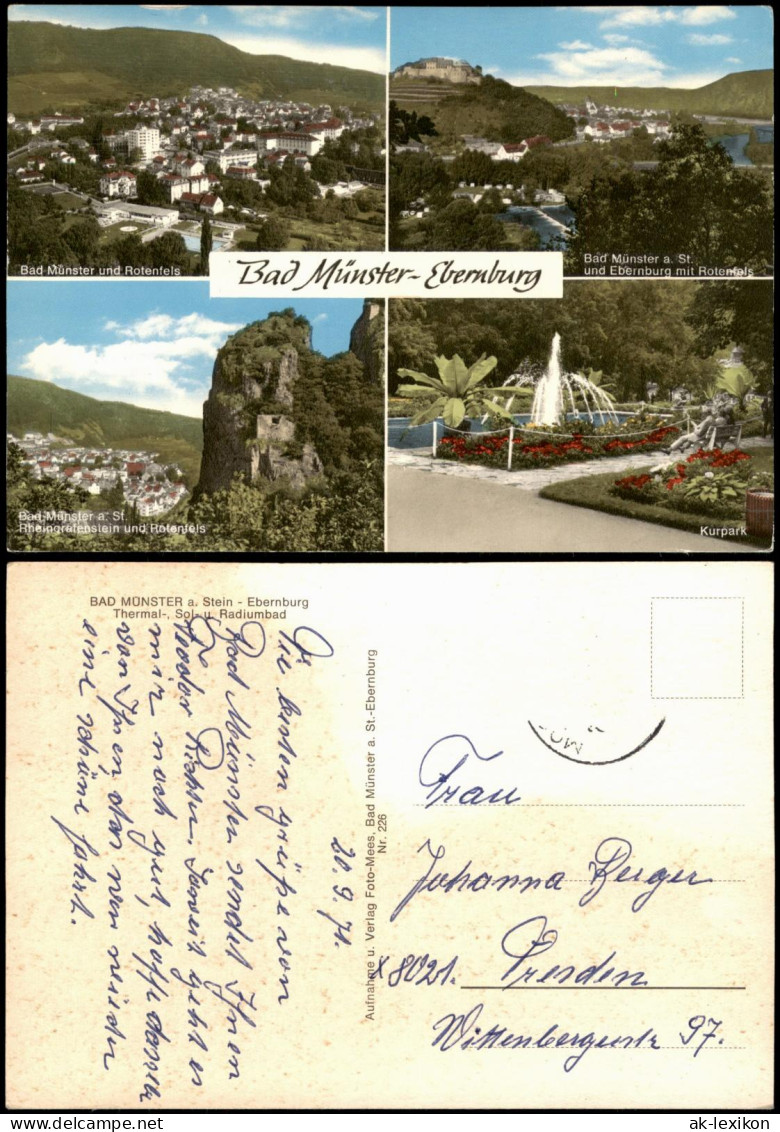 Bad Münster und Rotenfels
Bad Münster a. St.
und Ebernburg mit Rotenfels
Bad Münster-Ebernburg
Bad Münster a. St.
Rheingrafenstein und Rotenfels
Kurpark
BAD MÜNSTER a. Stein - Ebernburg
Thermal-, Sol- u. Radiumbad
Aufnahme u. Verlag Foto-Mees, Bad Münster a. St.-Ebernburg
Nr. 226
20. 9. 71.
Die besten Grüße von
Bad Münster sendet Ihnen
geht es
mir noch gut, hoffe dasselbe
von Ihnen
eine schöne Fahrt.
Frau
Johanna Berger
X 8021. Dresden
Wittenbergerstr 97.
ak-lexikon